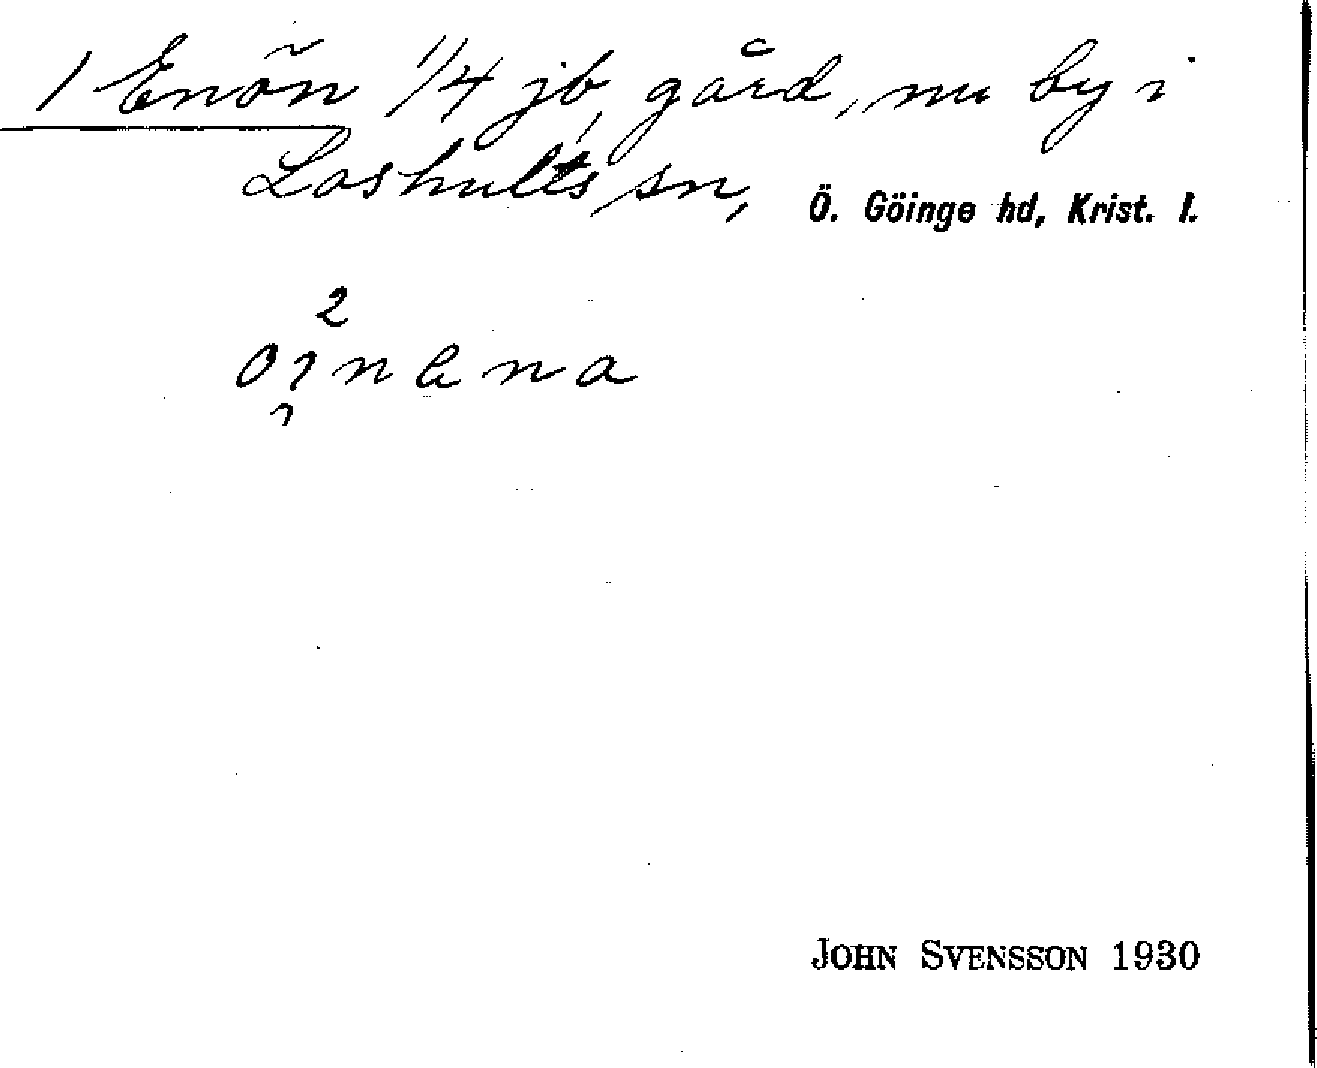 1 Enön 1/4 jb, gård, nu by i
Loshults sn, Ö. Göinge hd, Krist. l.
2
JOHN SVENSSON 1930